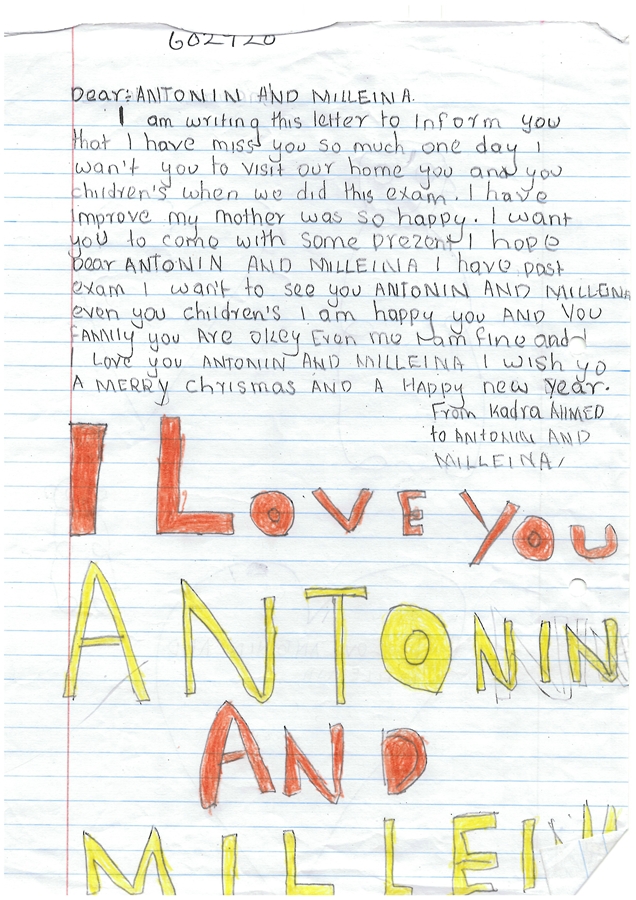 602720
Dear: ANTONIN AND MILLEINA.
I am writing this letter to Inform you
that I have miss you so much one day I
wan't you to visit our home you and you
children's when we did this exam. I have
improve my mother was so happy. I want
you to come with some prezent I hope
Dear ANTONIN AND MILLEINA I have past
exam I wan't to see you ANTONIN AND MILLEINA
even you children's I am happy you AND YOU
FAMILY you Are okey Even me I am fine and I
Love you ANTONIN AND MILLEINA I wish yo
A MERRY chrismas AND A HAppy new year.
From kadra AHMED
to ANTONIN AND
MILLEINA/
I LOVE YOU
ANTONIN
AND
MILLEIN